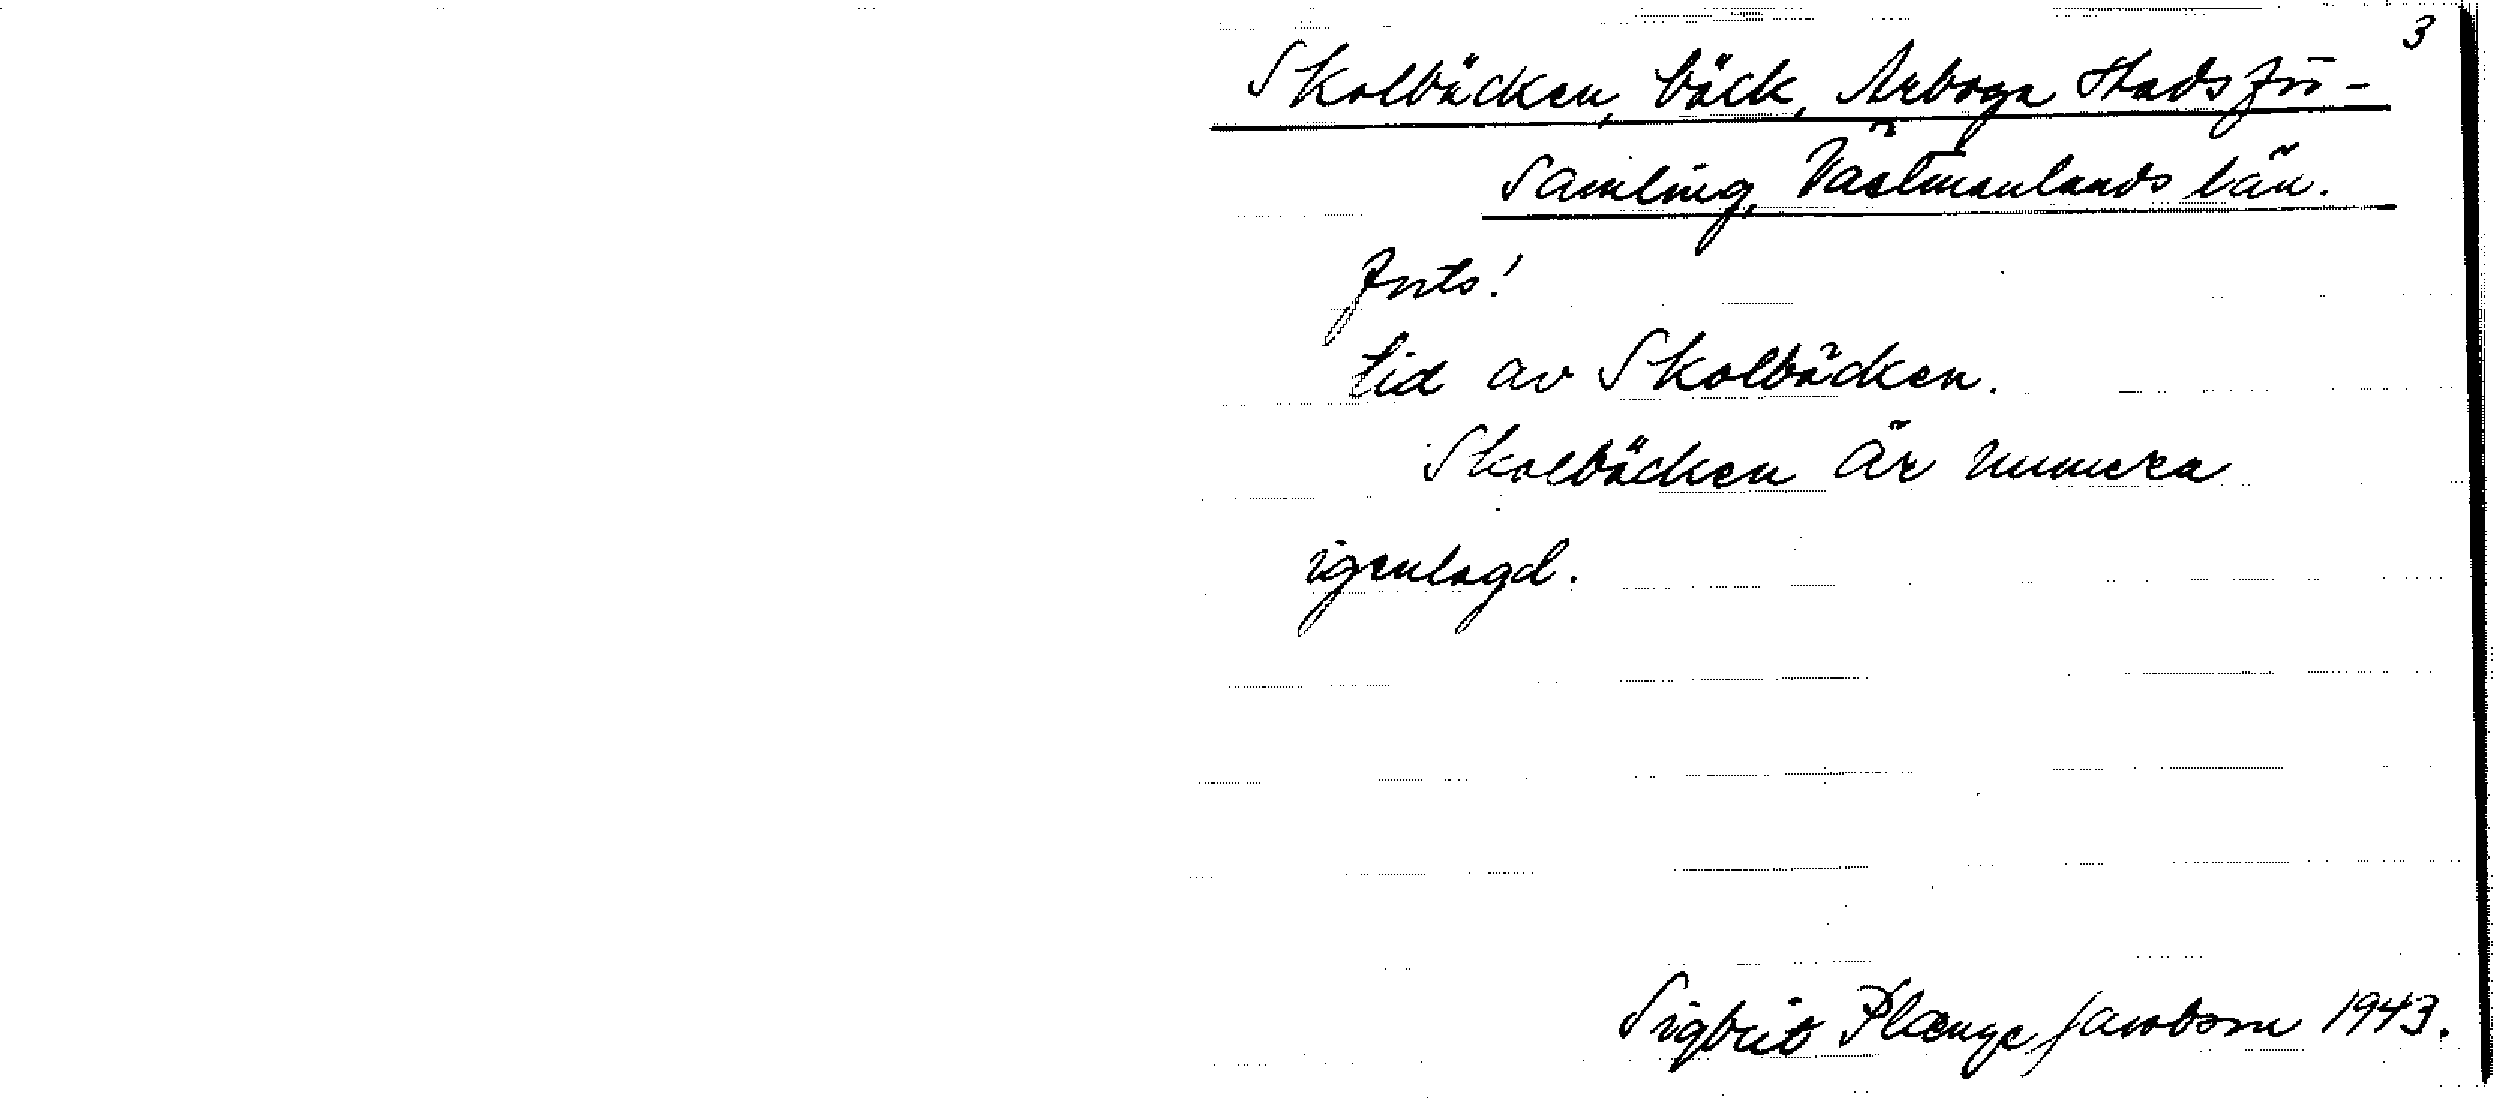 3
Skolbäcken, bäck, Arboga Stadsför-
samling, Västmanlands län.
Forts!
tid av Skolbäcken.
Skolbäcken är numera
igenlagd.
Sigbrit Plænge Jacobson 1943.